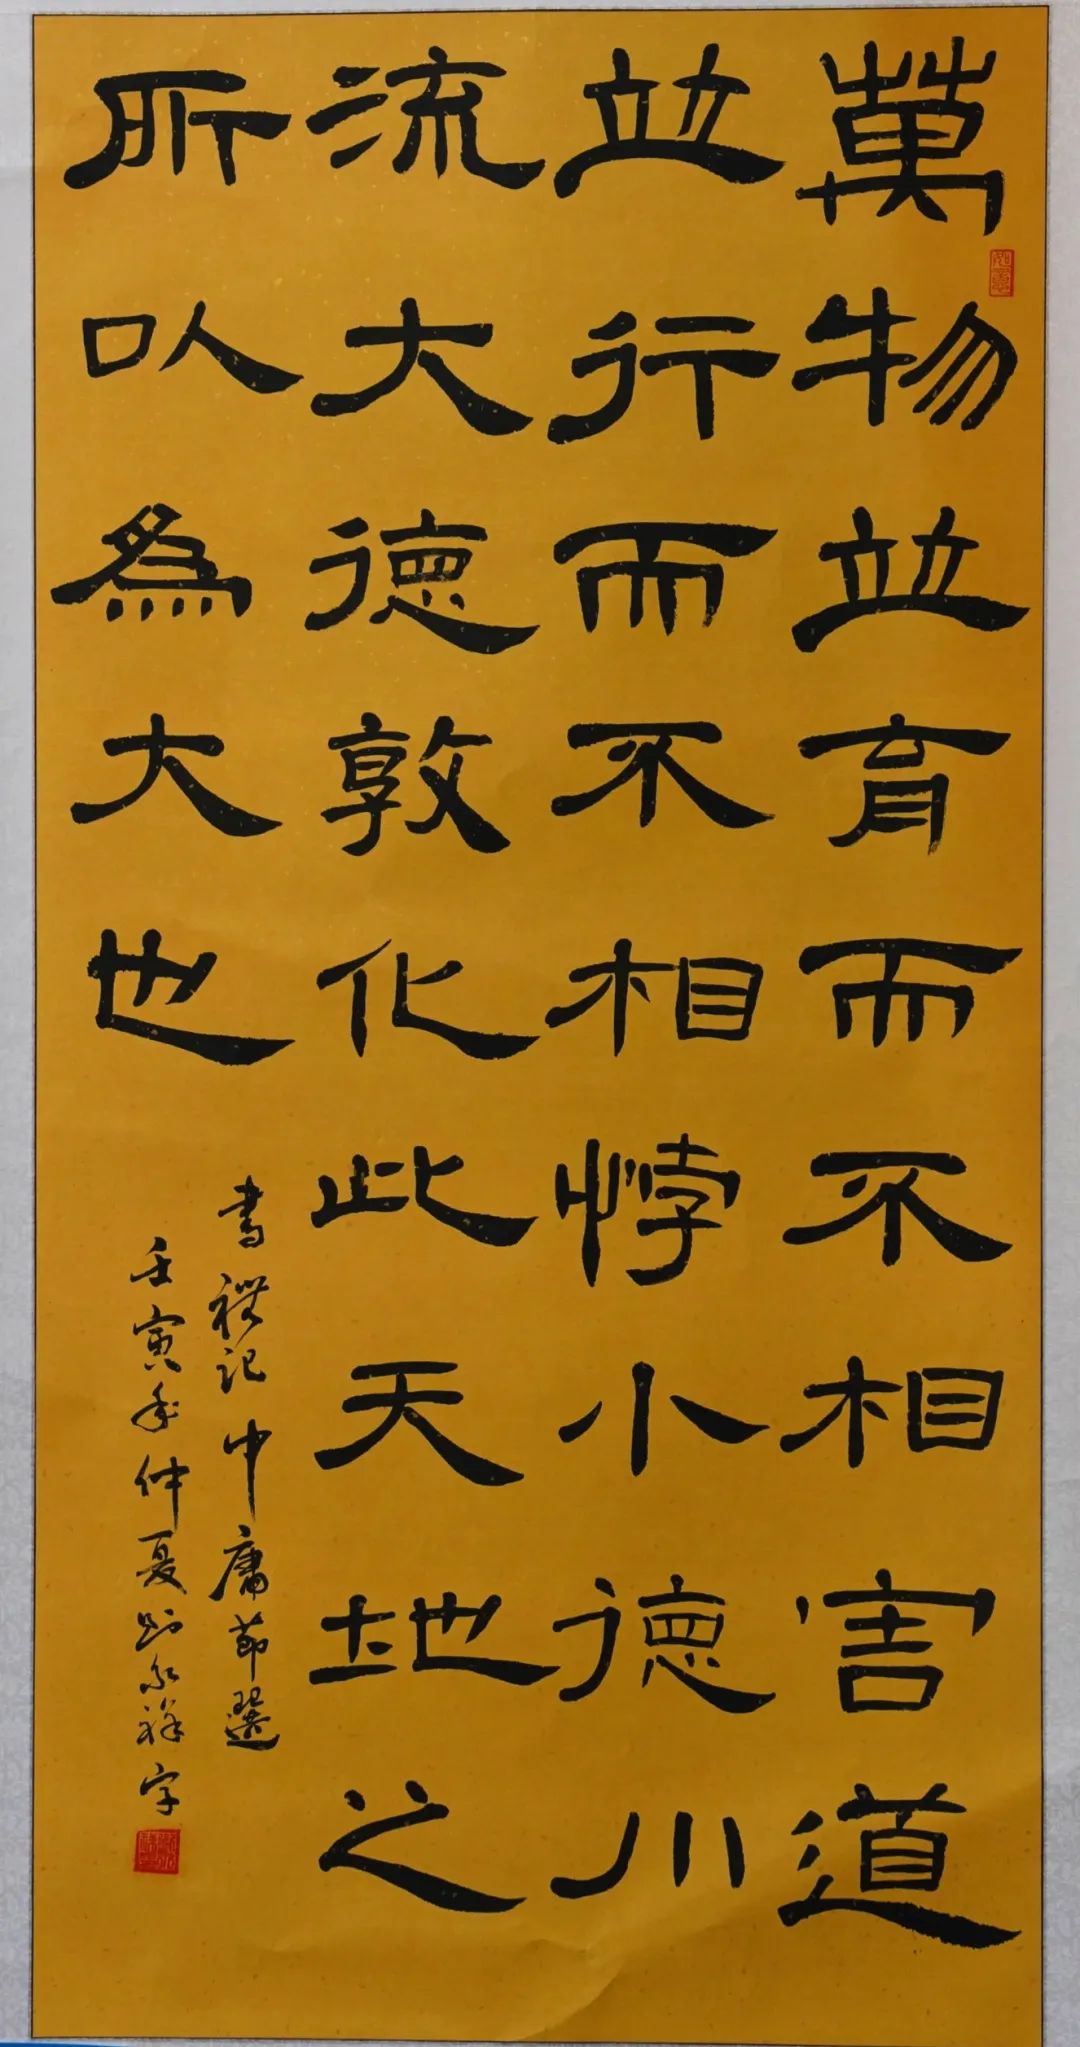 萬物並育而不相害道
並行而不相悖小德川
流大德敦化此天地之
所以為大也
書禮記中庸節選
壬寅年仲夏 永祥字